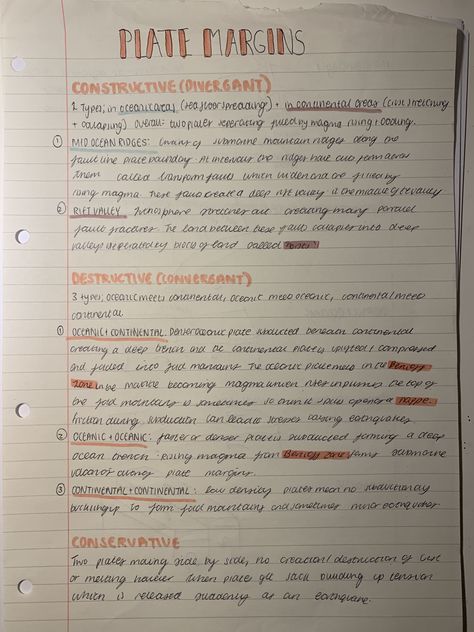 PLATE MARGINS
CONSTRUCTIVE (DIVERGANT)
2 Types; in oceanic areas (seafloor spreading) + in continental areas (crust stretching
+ collapsing) Overall: two plates seperating filled by magma rising + cooling.
① MID OCEAN RIDGES: of submarine mountain ridges along the
fault line plate boundary. At intervals the ridges have
them called transform faults which widen and are filled by
rising magma. These faults create a deep rift valley in the middle of
② RIFT VALLEY: lithosphere stretches out creating many parallel
faults fractures. The land between these faults collapses into deep
valleys seperated by blocks of land called
DESTRUCTIVE (CONVERGANT)
3 types; oceanic meets continental, oceanic meets oceanic, continental meets
continental
① OCEANIC + CONTINENTAL: Denser oceanic plate subducted beneath continental
creating a deep trench and the continental plate is uplifted, compressed
and folded into fold mountains. The oceanic plate melts in the Benioff
zone in the mantle becoming magma which rises The top of
the fold mountains is sometimes so opens a nappe.
Friction during subduction can lead to stresses causing earthquakes
② OCEANIC + OCEANIC: faster or denser plate is subducted forming a deep
ocean trench. Rising magma from Benioff zone forms submarine
volcanoes along plate margins.
③ CONTINENTAL + CONTINENTAL: low density plates mean no subduction
to form fold mountains and sometimes minor earthquakes
CONSERVATIVE
Two plates moving side by side, no creation/destruction of crust
or melting however when plates get stuck building up tension
which is released suddenly as an earthquake.